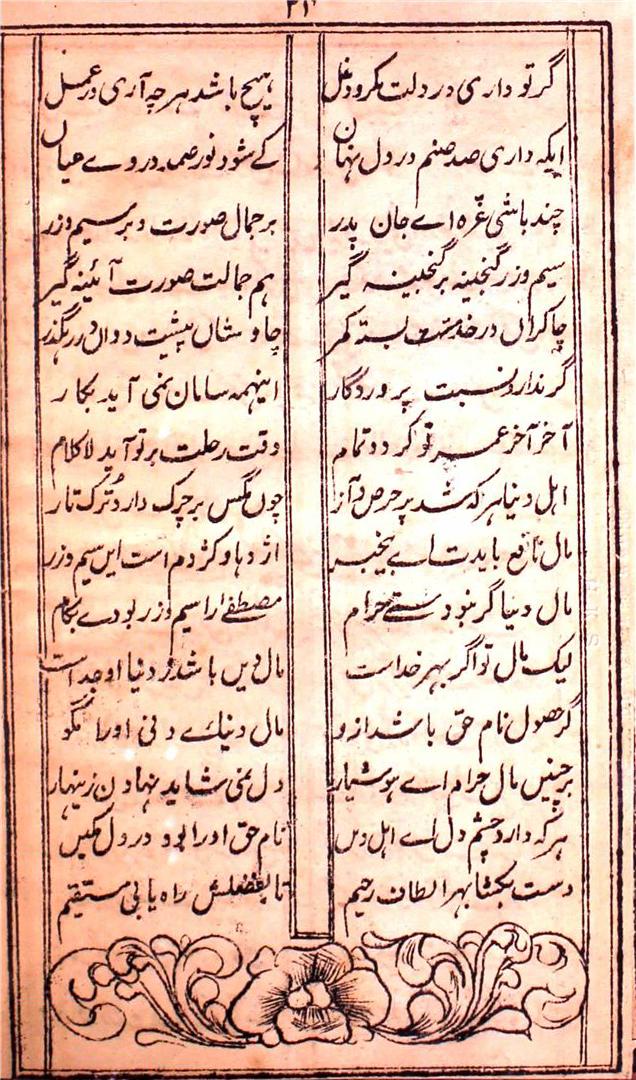 ۲۴
گر تو داری در دلت مکر و دغل ہیچ باشد ہر چہ آری در عمل
ایکہ داری صد صنم در دل نہاں کے شود نور صمد در وے عیاں
چند باشی غرّہ اے جان پدر بر جمال صورت و بر سیم و زر
سیم و زر گنجینہ بر گنجینہ گیر ہم جمالت صورت آئینہ گیر
چاکراں در خدمتت بستہ کمر چاوشاں پیشت دواں در رہگذر
گر ندارد نسبت پروردگار اینہمہ سامان نمی آید بکار
آخر آخر عمر تو گردد تمام وقت رحلت بر تو آید لاکلام
اہل دنیا ہر کہ شد پر حرص و آز چوں مگس بر چرک دارد ترک تاز
مال نافع بایدت اے بیخبر اژدہا و کژدم است ایں سیم و زر
مال دنیا گر نبودستے حرام مصطفےٰ را سیم و زر بودے بکام
لیک مال تو اگر بہر خداست مال دیں باشد ز دنیا او جداست
گر حصول نام حق باشد ازو مال دنیائے دنی او را مگو
بر چنیں مال حرام اے ہوشیار دل نمی شاید نہادن زینہار
ہر کہ دارد چشم دل اے اہل دیں نام حق او را بود در دل مکیں
دست بکشا بہر الطاف رحیم تا بفضلش راہ یابی مستقیم